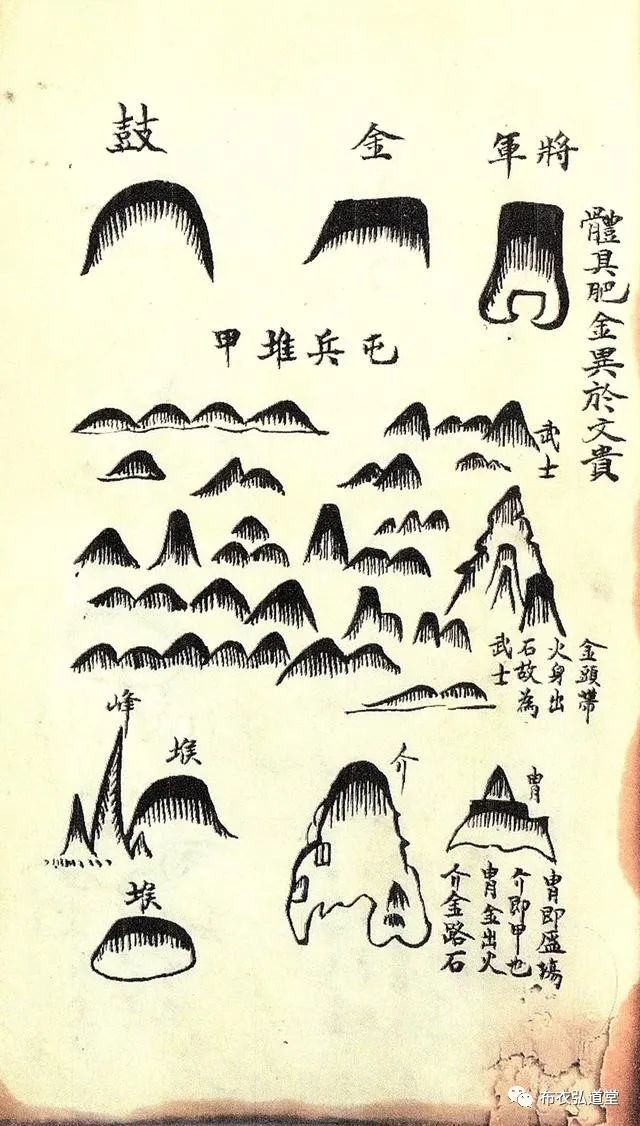 將軍
體具肥金異於文貴
金
鼓
屯兵堆甲
武士
金頭帶
火身出
石故為
武士
胄
胄即盔
介即甲也
胄金出火
介金路石
介
峰
堠
堠
布衣弘道堂